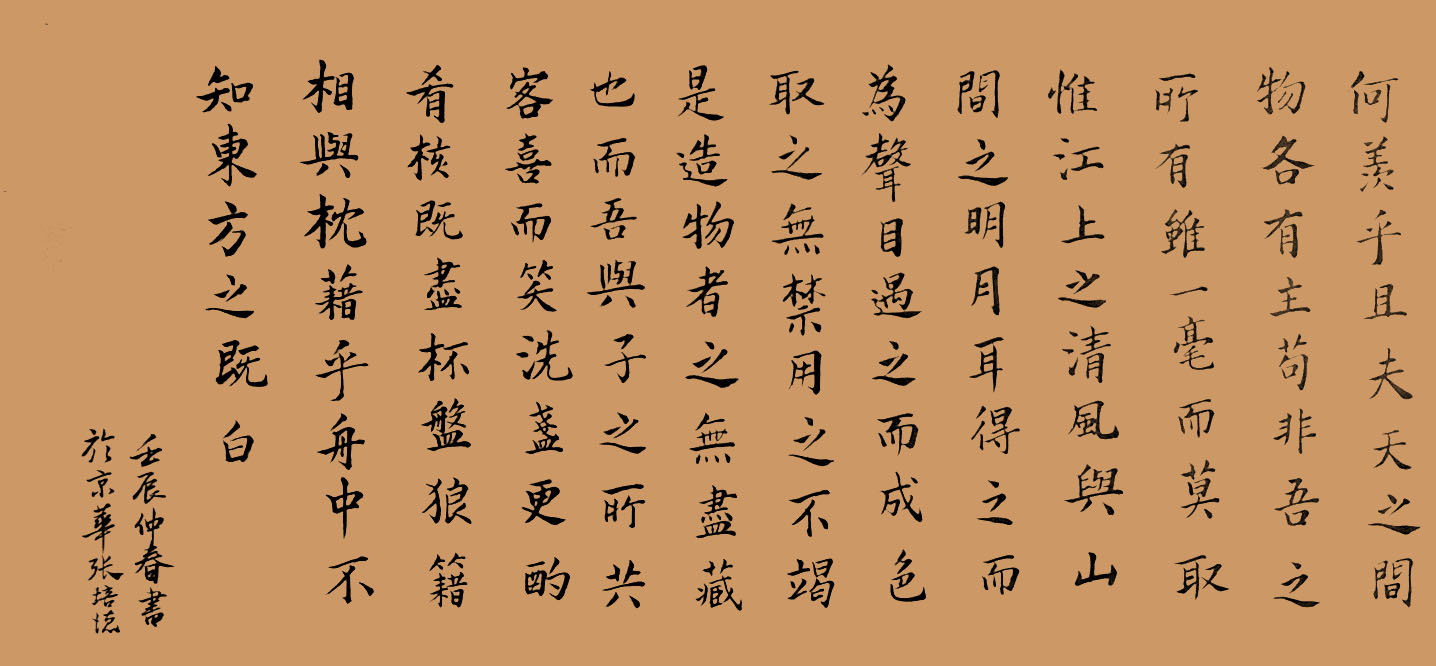 何羨乎且夫天之間
物各有主苟非吾之
所有雖一毫而莫取
惟江上之清風與山
間之明月耳得之而
為聲目遇之而成色
取之無禁用之不竭
是造物者之無盡藏
也而吾與子之所共
客喜而笑洗盞更酌
肴核既盡杯盤狼籍
相與枕藉乎舟中不
知東方之既白
壬辰仲春書
於京華张培